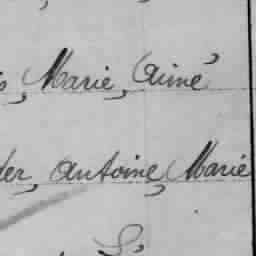 s, Marie, Aimé
der, Antoine, Marie